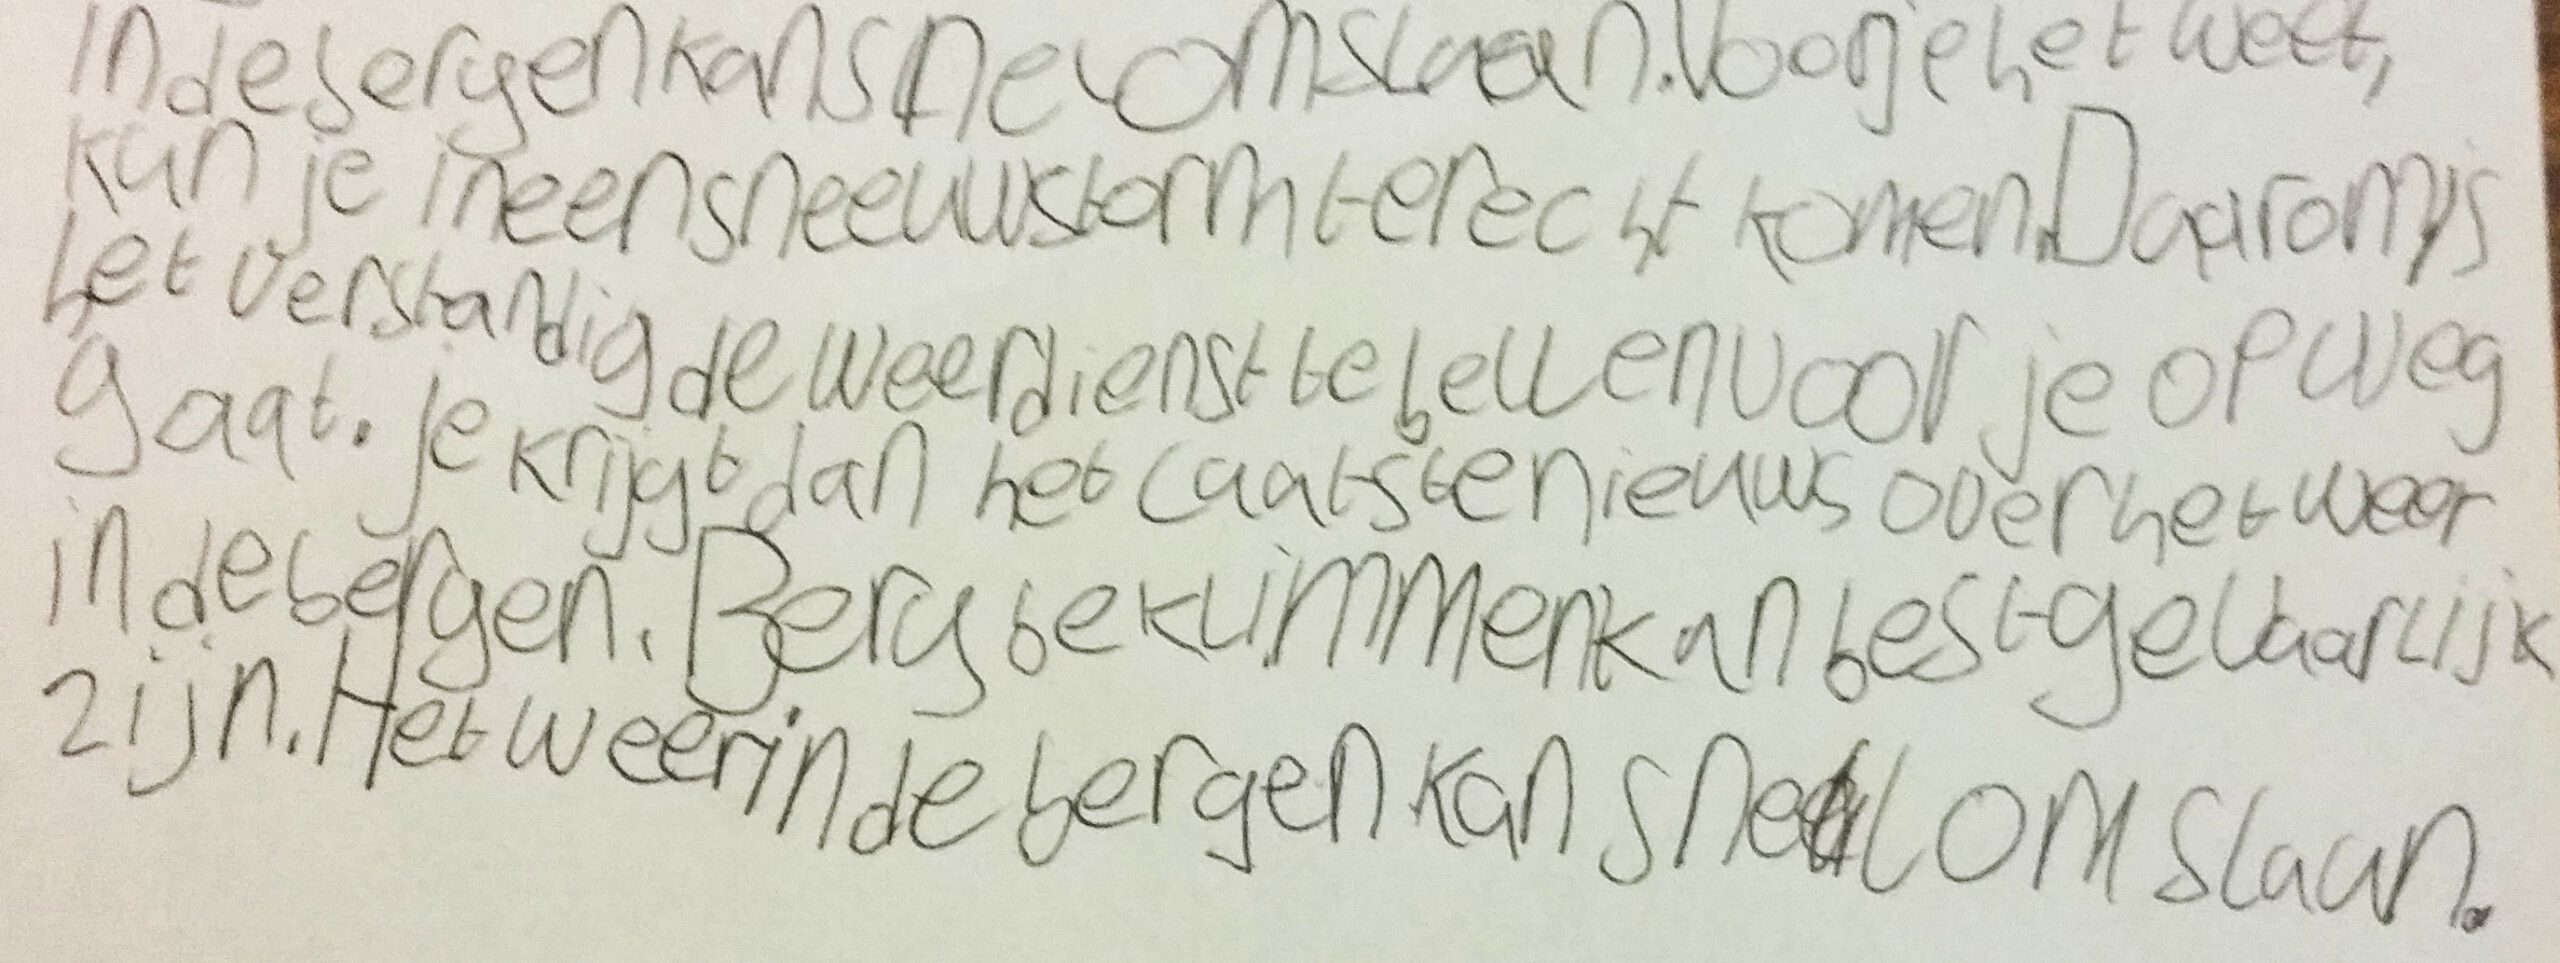 in de bergen kan snel omslaan. Voor je het weet,
kun je in een sneeuwstorm terecht komen. Daarom is
het verstandig de weerdienst te bellen voor je op weg
gaat. je krijgt dan het laatste nieuws over het weer
in de bergen. Bergbeklimmen kan best gevaarlijk
zijn. Het weer in de bergen kan snel omslaan.